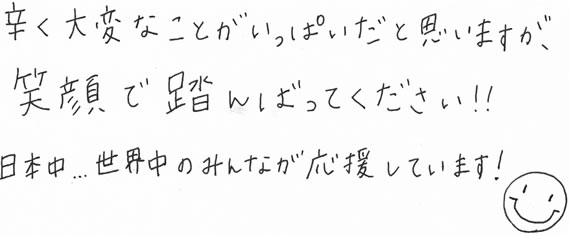 辛く大変なことがいっぱいだと思いますが、
笑顔で踏んばってください!!
日本中...世界中のみんなが応援しています!